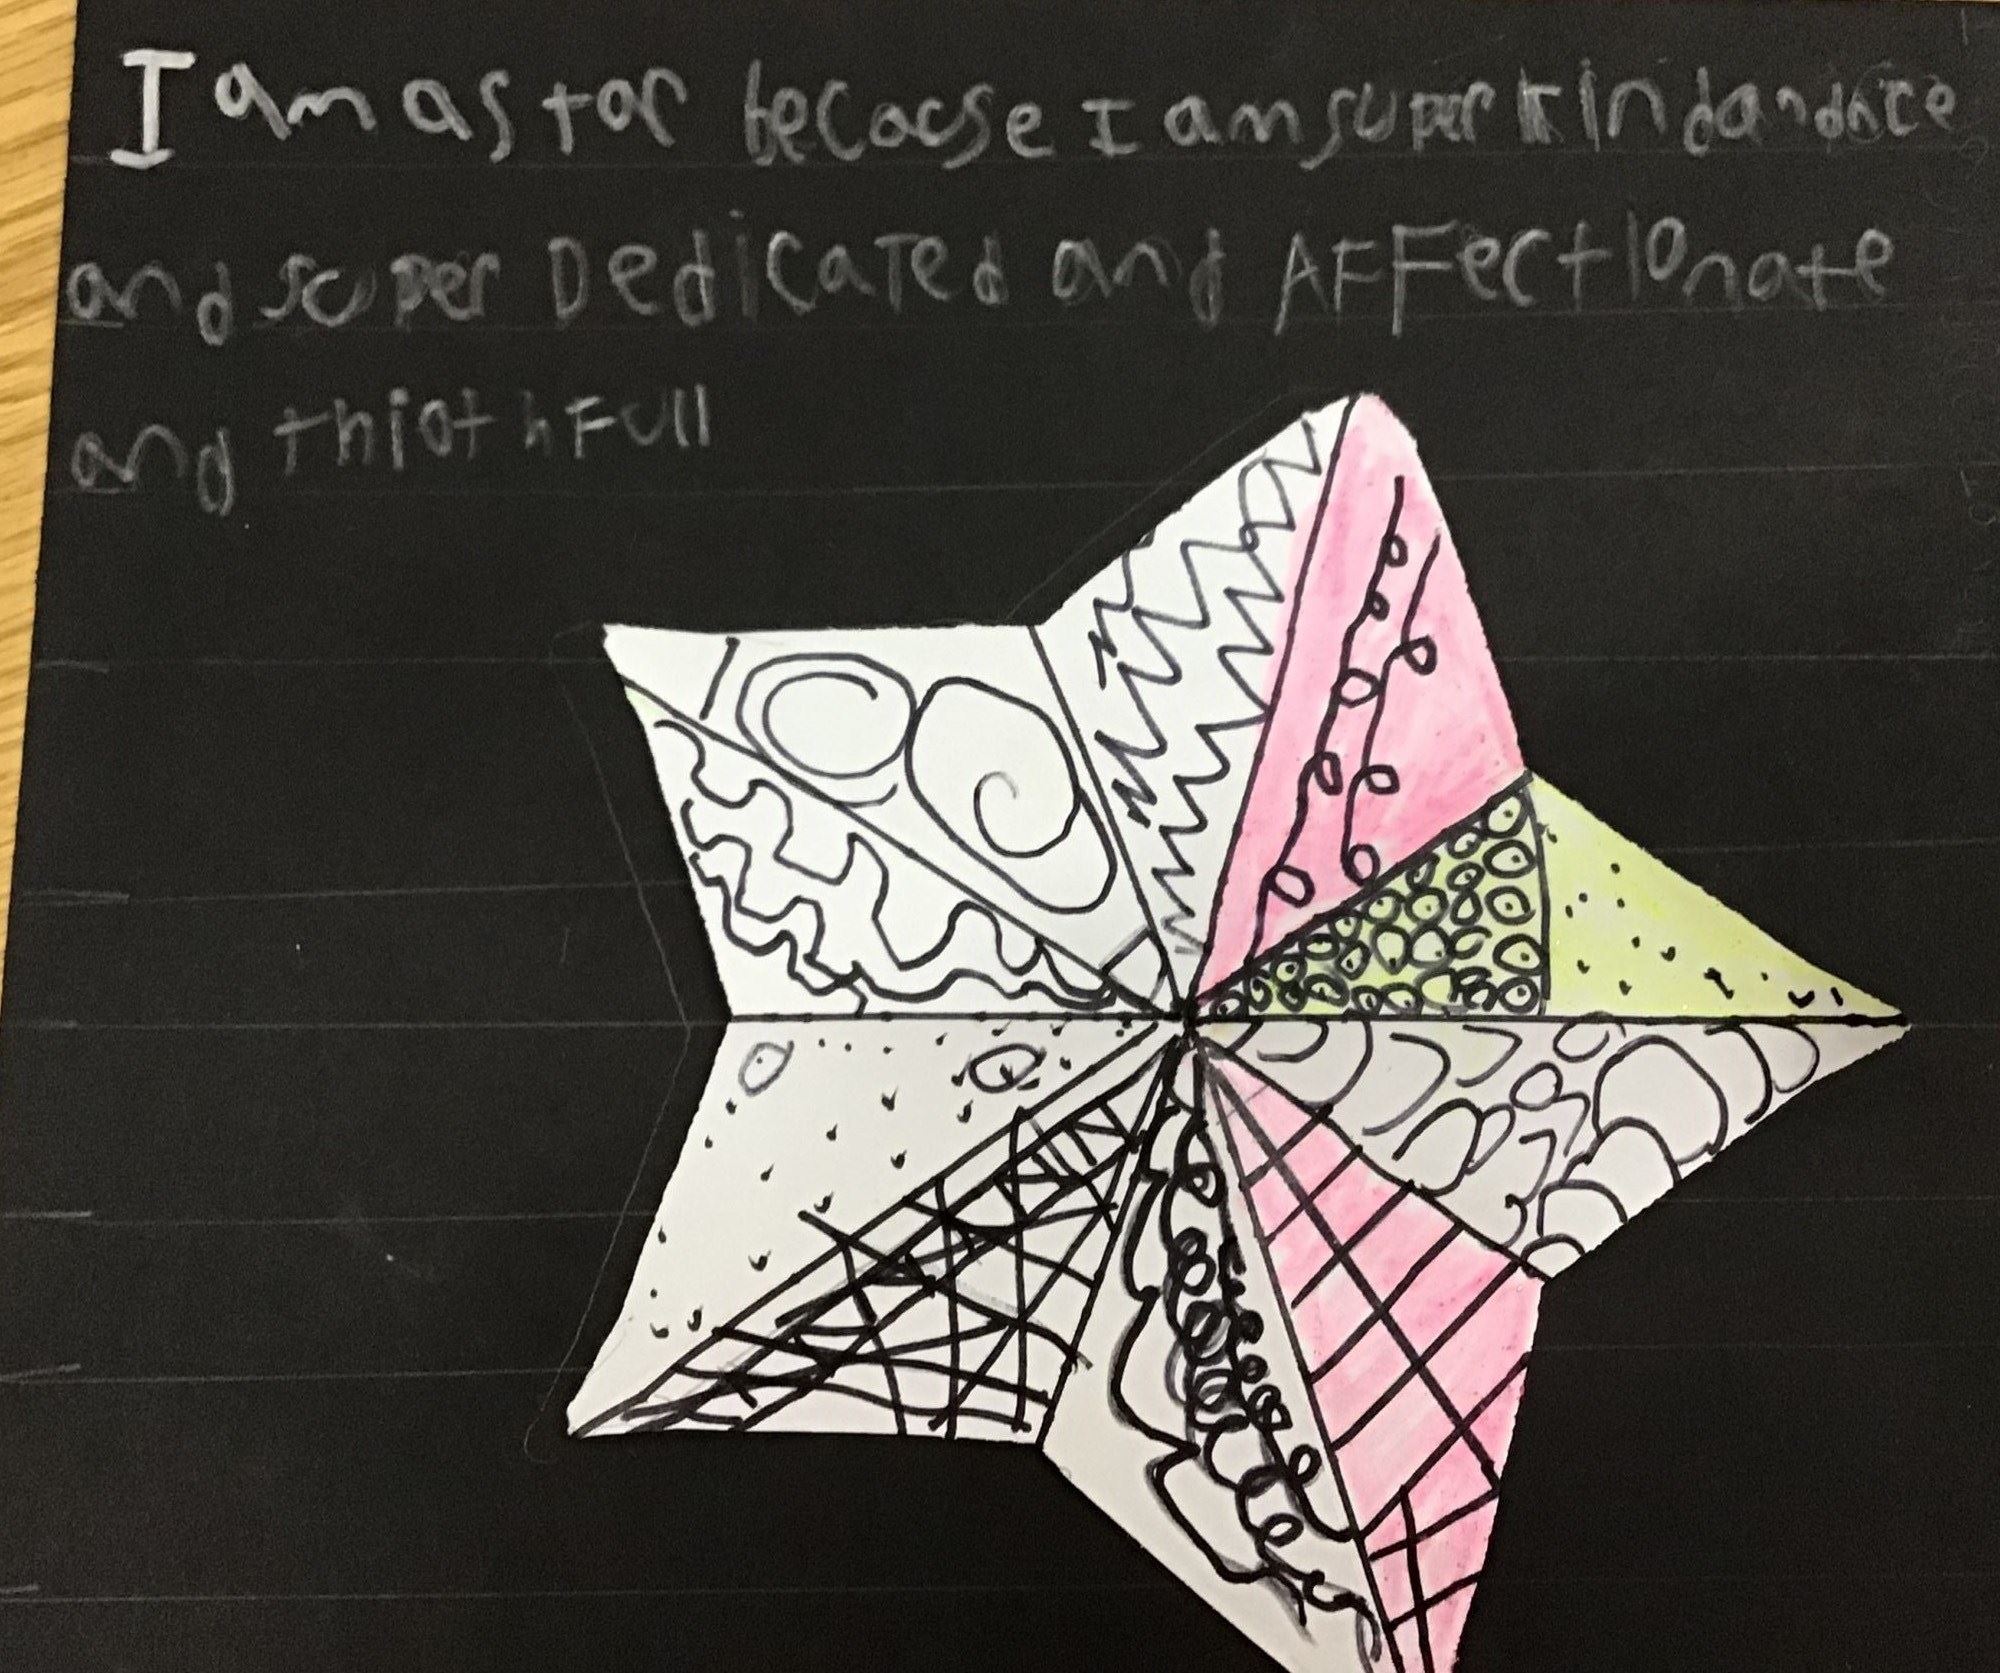 I am a star becacse I am super kind and nice
and super Dedicated and AFFectionate
and thiothFull